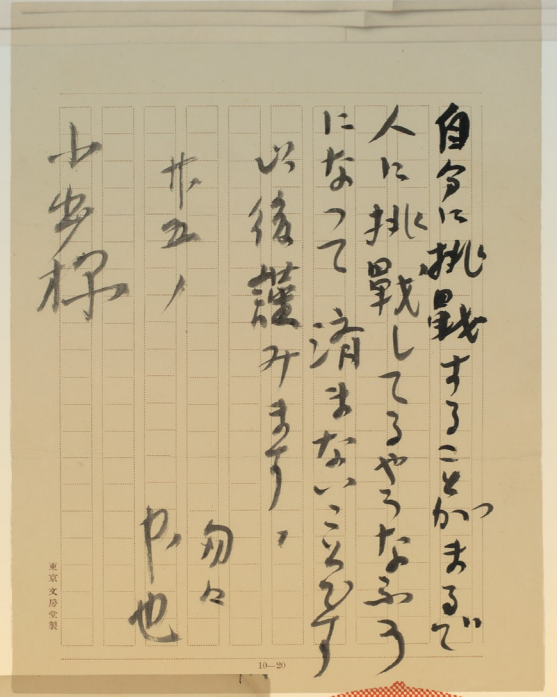 自分に挑戰することがまるで
人に挑戰してるやうなふう
になつて 済まないことです
以後謹みます。
匆々
廿五ノ
中也
様
東京文房堂製
10—20